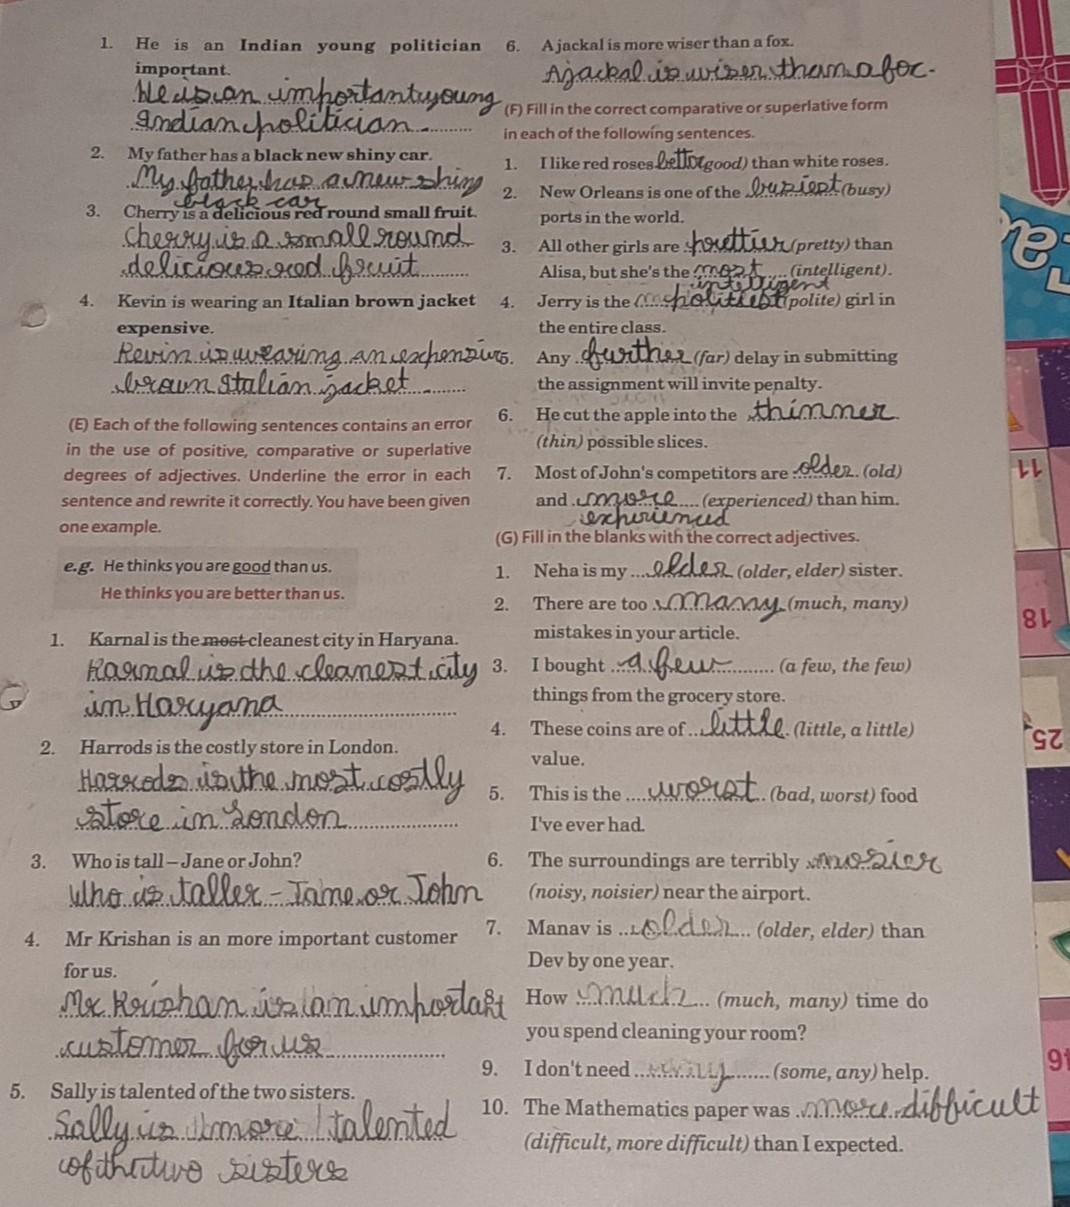 1. He is an Indian young politician
important.
He is an important young
Indian politician
2. My father has a black new shiny car.
My father has a new shiny
black car
3. Cherry is a delicious red round small fruit.
Cherry is a small round
delicious red fruit
4. Kevin is wearing an Italian brown jacket
expensive.
Kevin is wearing an expensive
brown Italian jacket
(E) Each of the following sentences contains an error
in the use of positive, comparative or superlative
degrees of adjectives. Underline the error in each
sentence and rewrite it correctly. You have been given
one example.
e.g. He thinks you are good than us.
He thinks you are better than us.
1. Karnal is the most cleanest city in Haryana.
Karnal is the cleanest city
in Haryana
2. Harrods is the costly store in London.
Harrods is the most costly
store in London
3. Who is tall – Jane or John?
Who is taller - Jane or John
4. Mr Krishan is an more important customer
for us.
Mr Krishan is an important
customer for us
5. Sally is talented of the two sisters.
Sally is more talented
of the two sisters
6. A jackal is more wiser than a fox.
A jackal is wiser than a fox.
(F) Fill in the correct comparative or superlative form
in each of the following sentences.
1. I like red roses better (good) than white roses.
2. New Orleans is one of the busiest (busy)
ports in the world.
3. All other girls are prettier (pretty) than
Alisa, but she's the most (intelligent).
intelligent
4. Jerry is the politiest (polite) girl in
the entire class.
5. Any further (far) delay in submitting
the assignment will invite penalty.
6. He cut the apple into the thinner
(thin) possible slices.
7. Most of John's competitors are older (old)
and more (experienced) than him.
experienced
(G) Fill in the blanks with the correct adjectives.
1. Neha is my elder (older, elder) sister.
2. There are too many (much, many)
mistakes in your article.
3. I bought a few (a few, the few)
things from the grocery store.
4. These coins are of little (little, a little)
value.
5. This is the worst (bad, worst) food
I've ever had.
6. The surroundings are terribly nosier
(noisy, noisier) near the airport.
7. Manav is older (older, elder) than
Dev by one year.
How much (much, many) time do
you spend cleaning your room?
9. I don't need any (some, any) help.
10. The Mathematics paper was more difficult
(difficult, more difficult) than I expected.
11
18
25